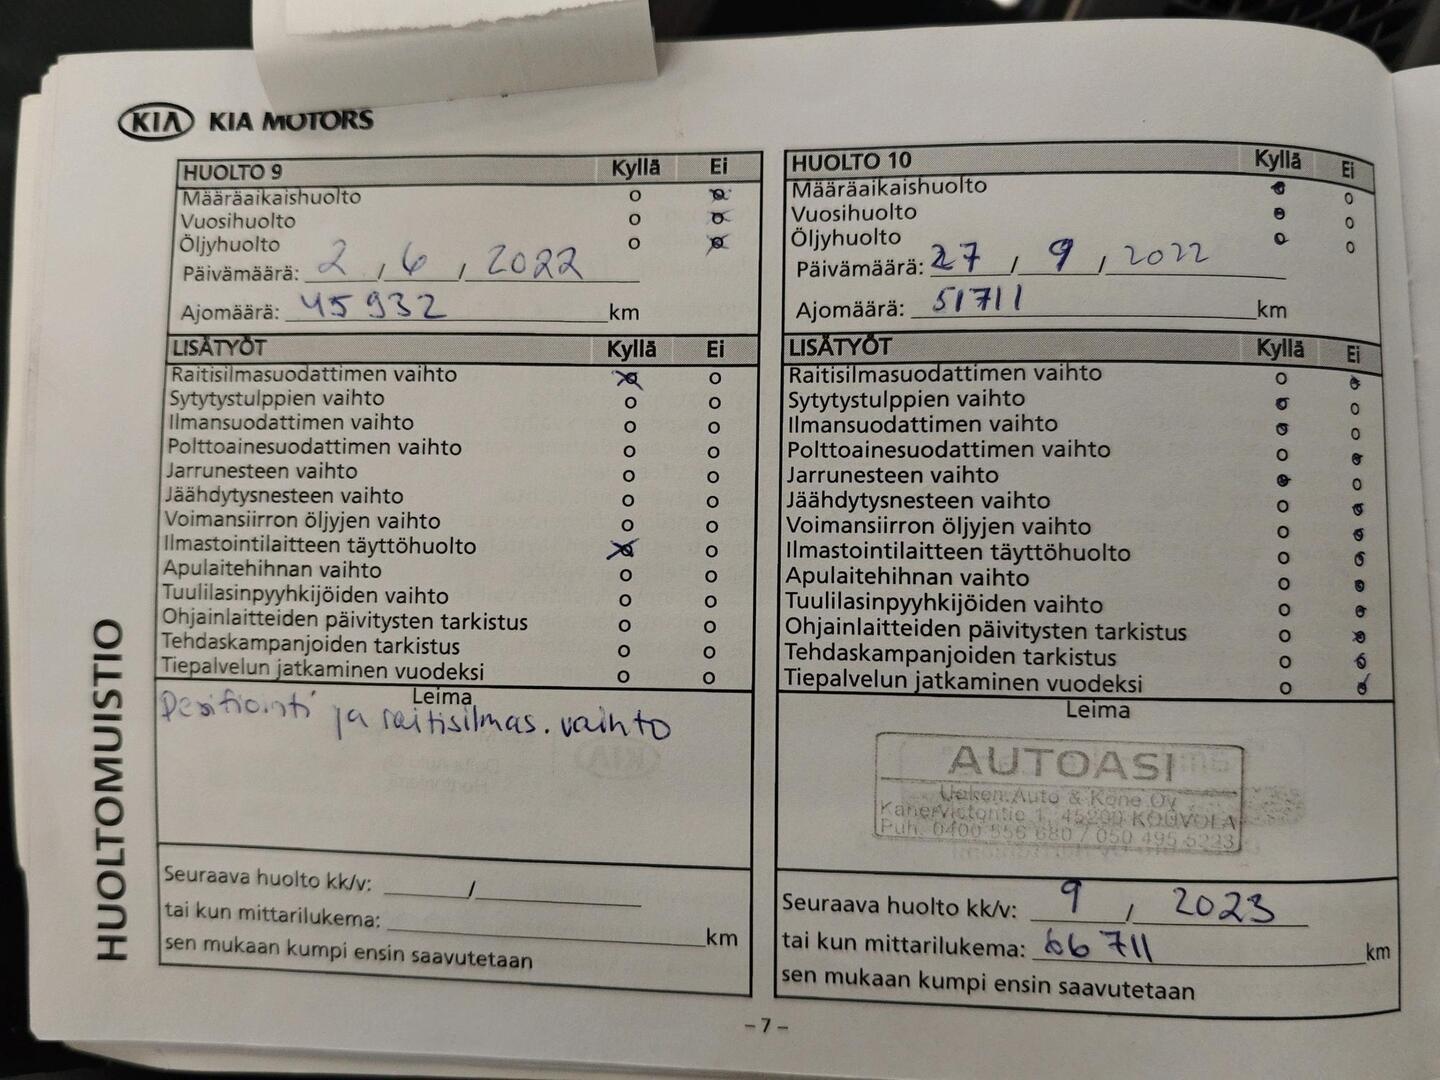 KIA KIA MOTORS
HUOLTOMUISTIO
HUOLTO 9 Kyllä Ei
Määräaikaishuolto o o
Vuosihuolto o o
Öljyhuolto o o
Päivämäärä: 2 / 6 / 2022
Ajomäärä: 45932 km
LISÄTYÖT Kyllä Ei
Raitisilmasuodattimen vaihto o o
Sytytystulppien vaihto o o
Ilmansuodattimen vaihto o o
Polttoainesuodattimen vaihto o o
Jarrunesteen vaihto o o
Jäähdytysnesteen vaihto o o
Voimansiirron öljyjen vaihto o o
Ilmastointilaitteen täyttöhuolto o o
Apulaitehihnan vaihto o o
Tuulilasinpyyhkijöiden vaihto o o
Ohjainlaitteiden päivitysten tarkistus o o
Tehdaskampanjoiden tarkistus o o
Tiepalvelun jatkaminen vuodeksi o o
Leima
ja raitisilmas. vaihto
Seuraava huolto kk/v: /
tai kun mittarilukema: km
sen mukaan kumpi ensin saavutetaan
HUOLTO 10 Kyllä Ei
Määräaikaishuolto o o
Vuosihuolto o o
Öljyhuolto o o
Päivämäärä: 27 / 9 / 2022
Ajomäärä: 51711 km
LISÄTYÖT Kyllä Ei
Raitisilmasuodattimen vaihto o o
Sytytystulppien vaihto o o
Ilmansuodattimen vaihto o o
Polttoainesuodattimen vaihto o o
Jarrunesteen vaihto o o
Jäähdytysnesteen vaihto o o
Voimansiirron öljyjen vaihto o o
Ilmastointilaitteen täyttöhuolto o o
Apulaitehihnan vaihto o o
Tuulilasinpyyhkijöiden vaihto o o
Ohjainlaitteiden päivitysten tarkistus o o
Tehdaskampanjoiden tarkistus o o
Tiepalvelun jatkaminen vuodeksi o o
Leima
AUTOASI
Auto & Kone Oy
1, 45200 KOUVOLA
Puh. 0400 556 680 / 050 495 5223
Seuraava huolto kk/v: 9 / 2023
tai kun mittarilukema: 66711 km
sen mukaan kumpi ensin saavutetaan
- 7 -